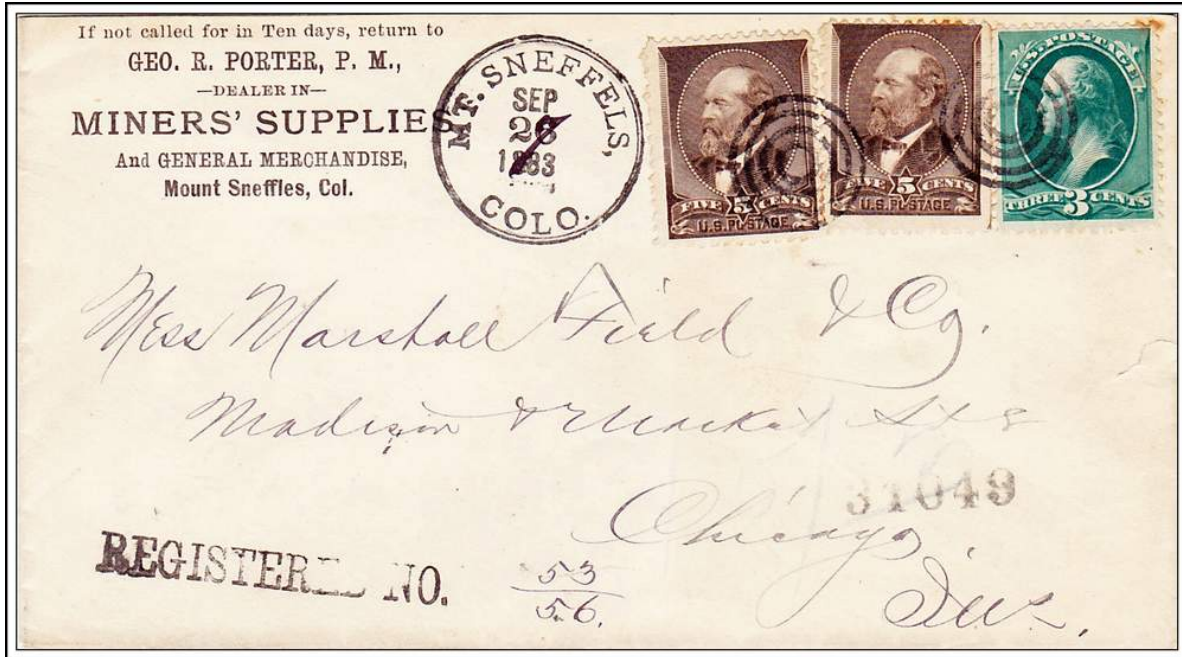 If not called for in Ten days, return to
GEO. R. PORTER, P. M.,
—DEALER IN—
MINERS' SUPPLIES
And GENERAL MERCHANDISE,
Mount Sneffles, Col.
MT. SNEFFELS,
SEP
26
1883
COLO.
FIVE 5 CENTS
U.S. POSTAGE
FIVE 5 CENTS
U.S. POSTAGE
U.S. POSTAGE
THREE 3 CENTS
Mess Marshall Field & Co.
Madison & Market Sts
31049
Chicago
Ills.
REGISTERED NO.
53
56.